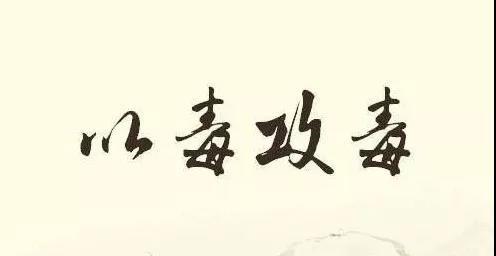 以毒攻毒